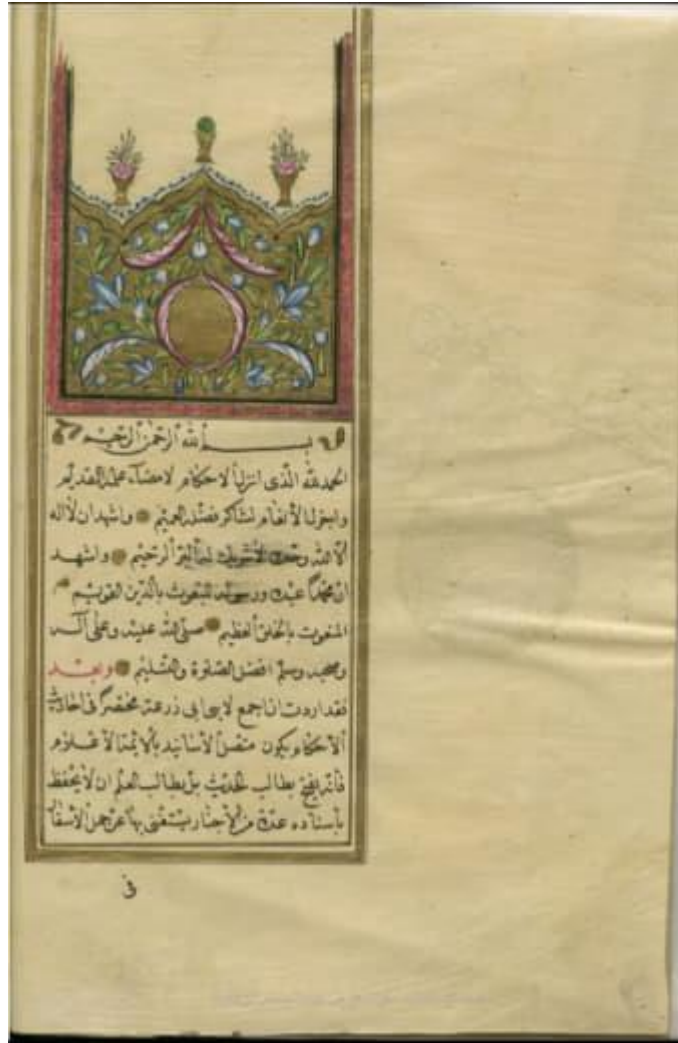 بسم الله الرحمن الرحيم
الحمد لله الذى انزل الاحكام لامضاء علمه القديم
واجزل الانعام لشاكر فضله العميم واشهد ان لا اله
الا الله وحده لا شريك له البر الرحيم واشهد
ان محمدا عبده ورسوله المبعوث بالدين القويم
المنعوت بالخلق العظيم صلى الله عليه وعلى آله
وصحبه وسلم افضل الصلوة والتسليم وبعد
فقد اردت ان اجمع لابنى ابى زرعة مختصرا فى احاديث
الاحكام يكون متصل الاسانيد بالائمة الاعلام
فانه يقبح بطالب الحديث بل بطالب العلم ان لا يحفظ
باسناده عدة من الاخبار يستغنى بها عن حمل الاسفار
فى